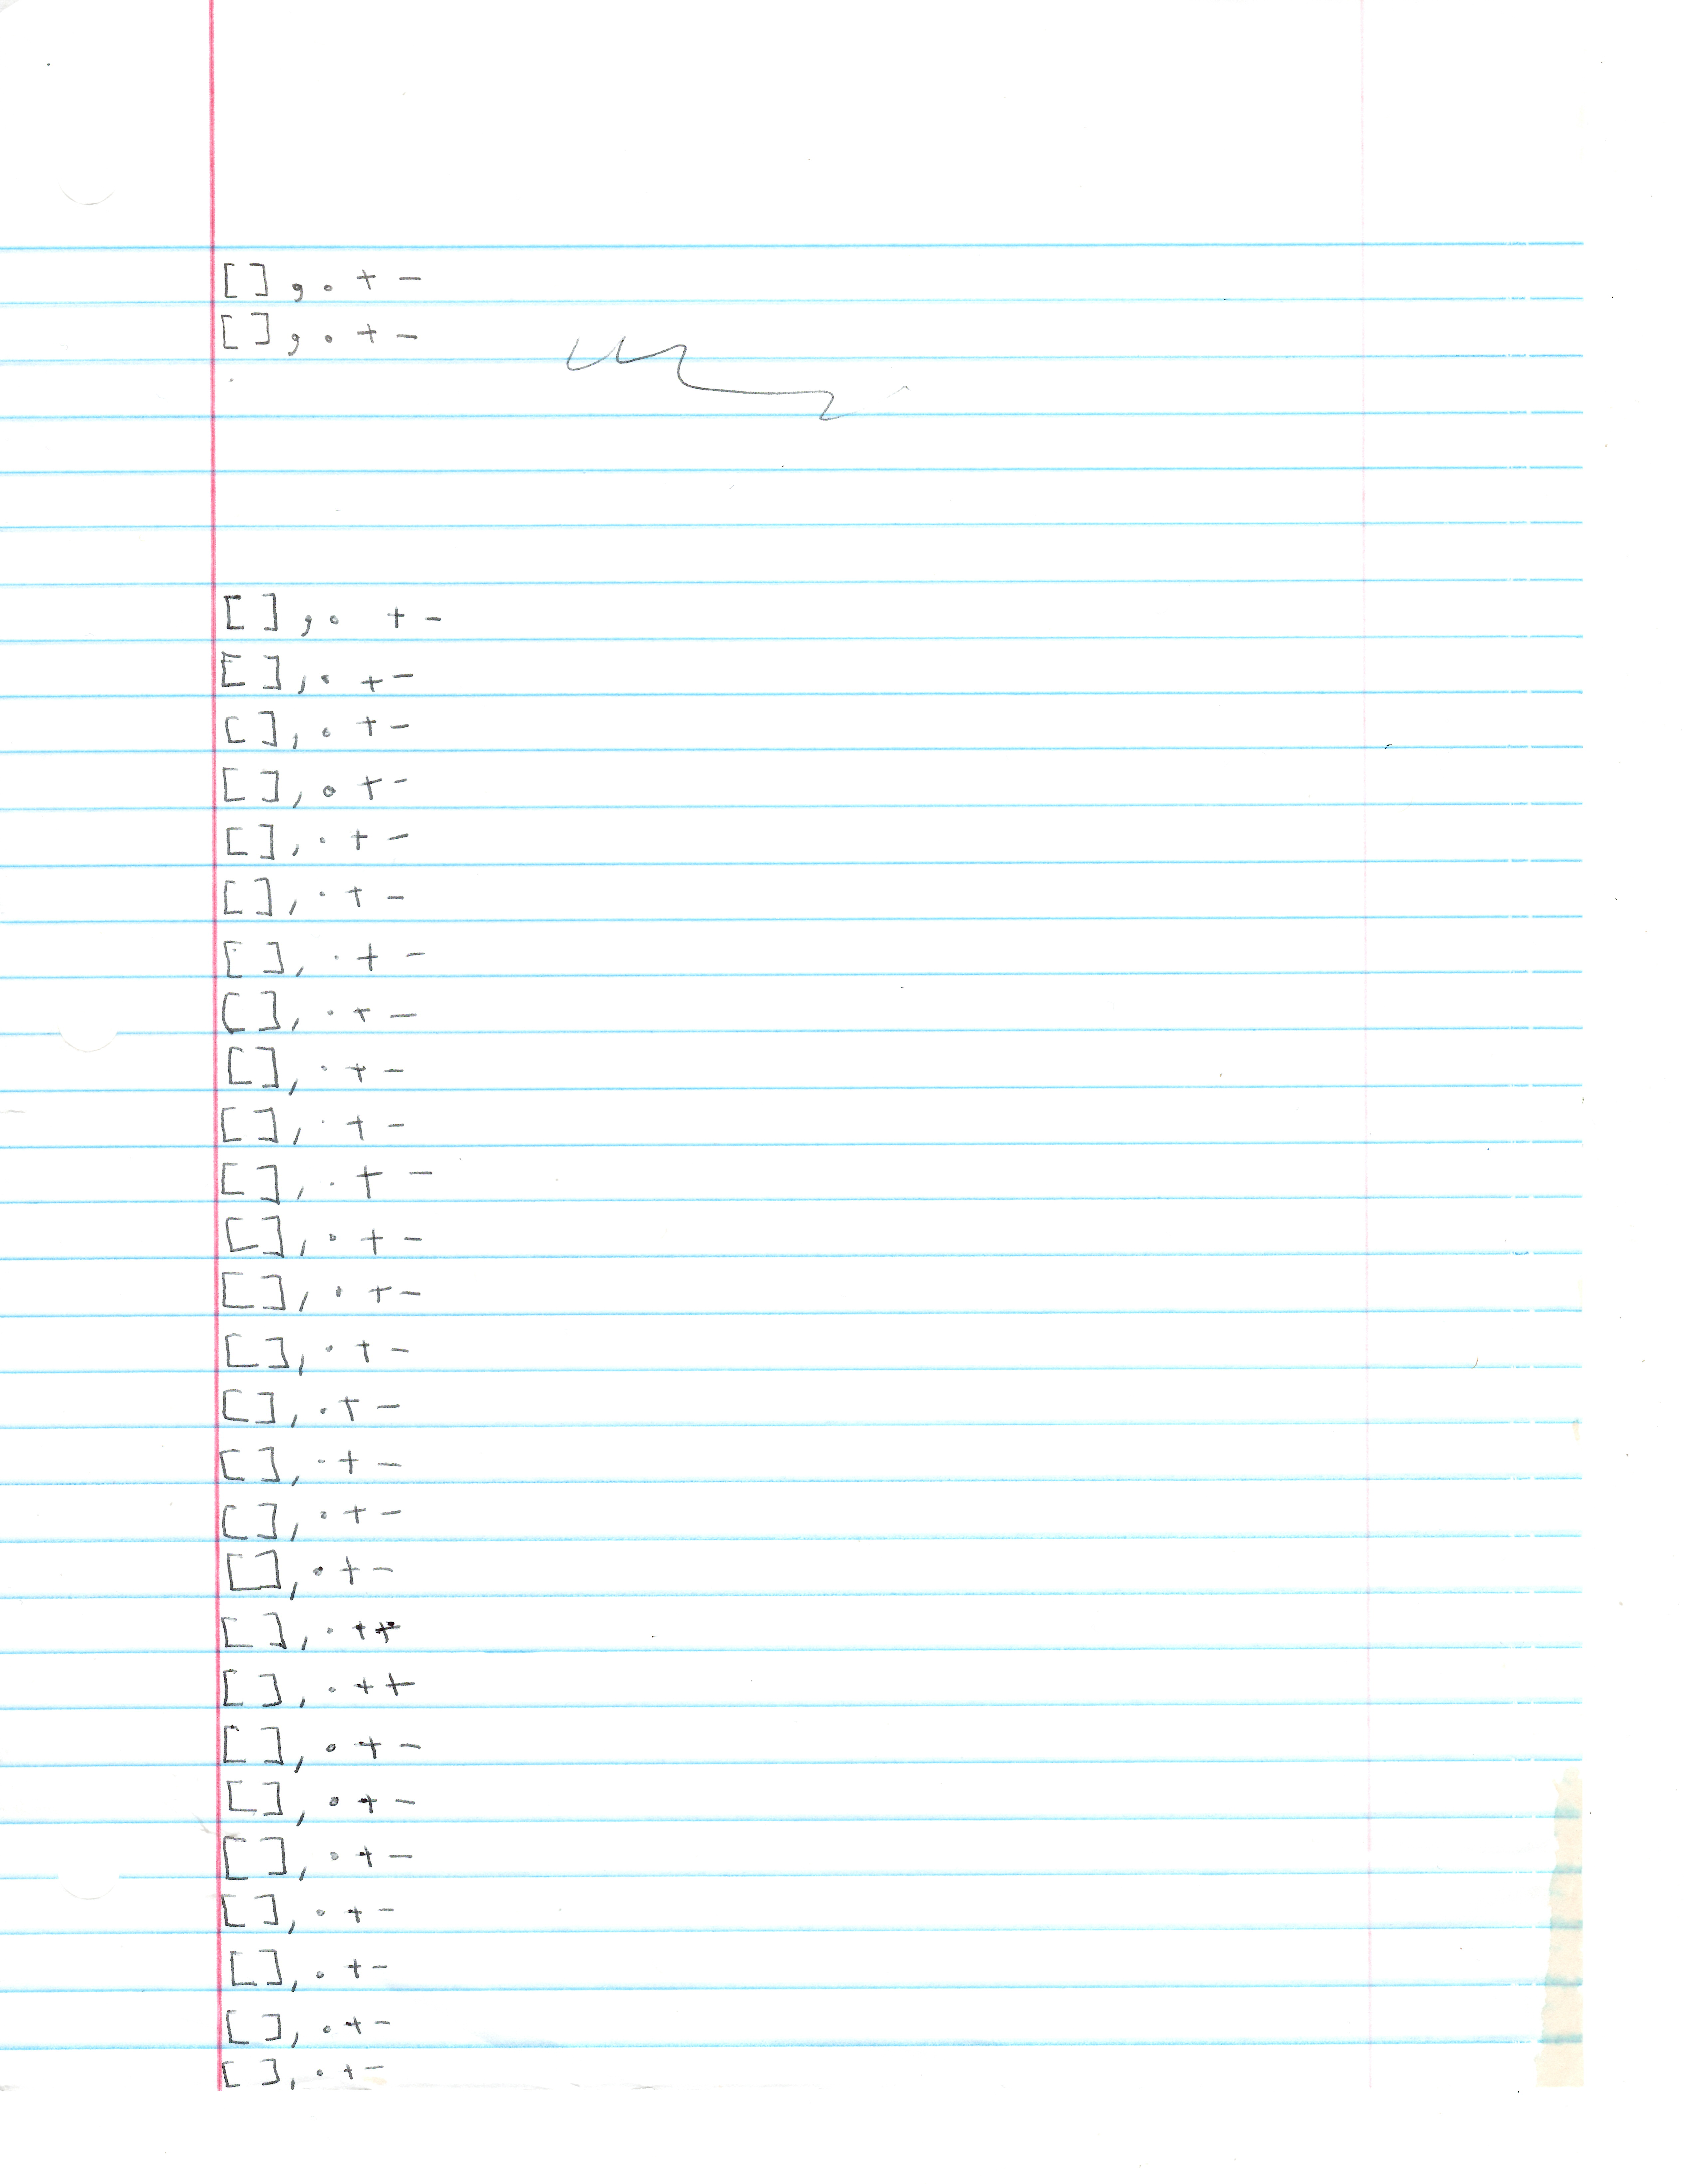 [ ] , . + -
[ ] , . + -
[ ] , . + -
[ ] , . + -
[ ] , . + -
[ ] , . + -
[ ] , . + -
[ ] , . + -
[ ] , . + -
[ ] , . + -
[ ] , . + -
[ ] , . + -
[ ] , . + -
[ ] , . + -
[ ] , . + -
[ ] , . + -
[ ] , . + -
[ ] , . + -
[ ] , . + -
[ ] , . + -
[ ] , . + +
[ ] , . + +
[ ] , . + -
[ ] , . + -
[ ] , . + -
[ ] , . + -
[ ] , . + -
[ ] , . + -
[ ] , . + -